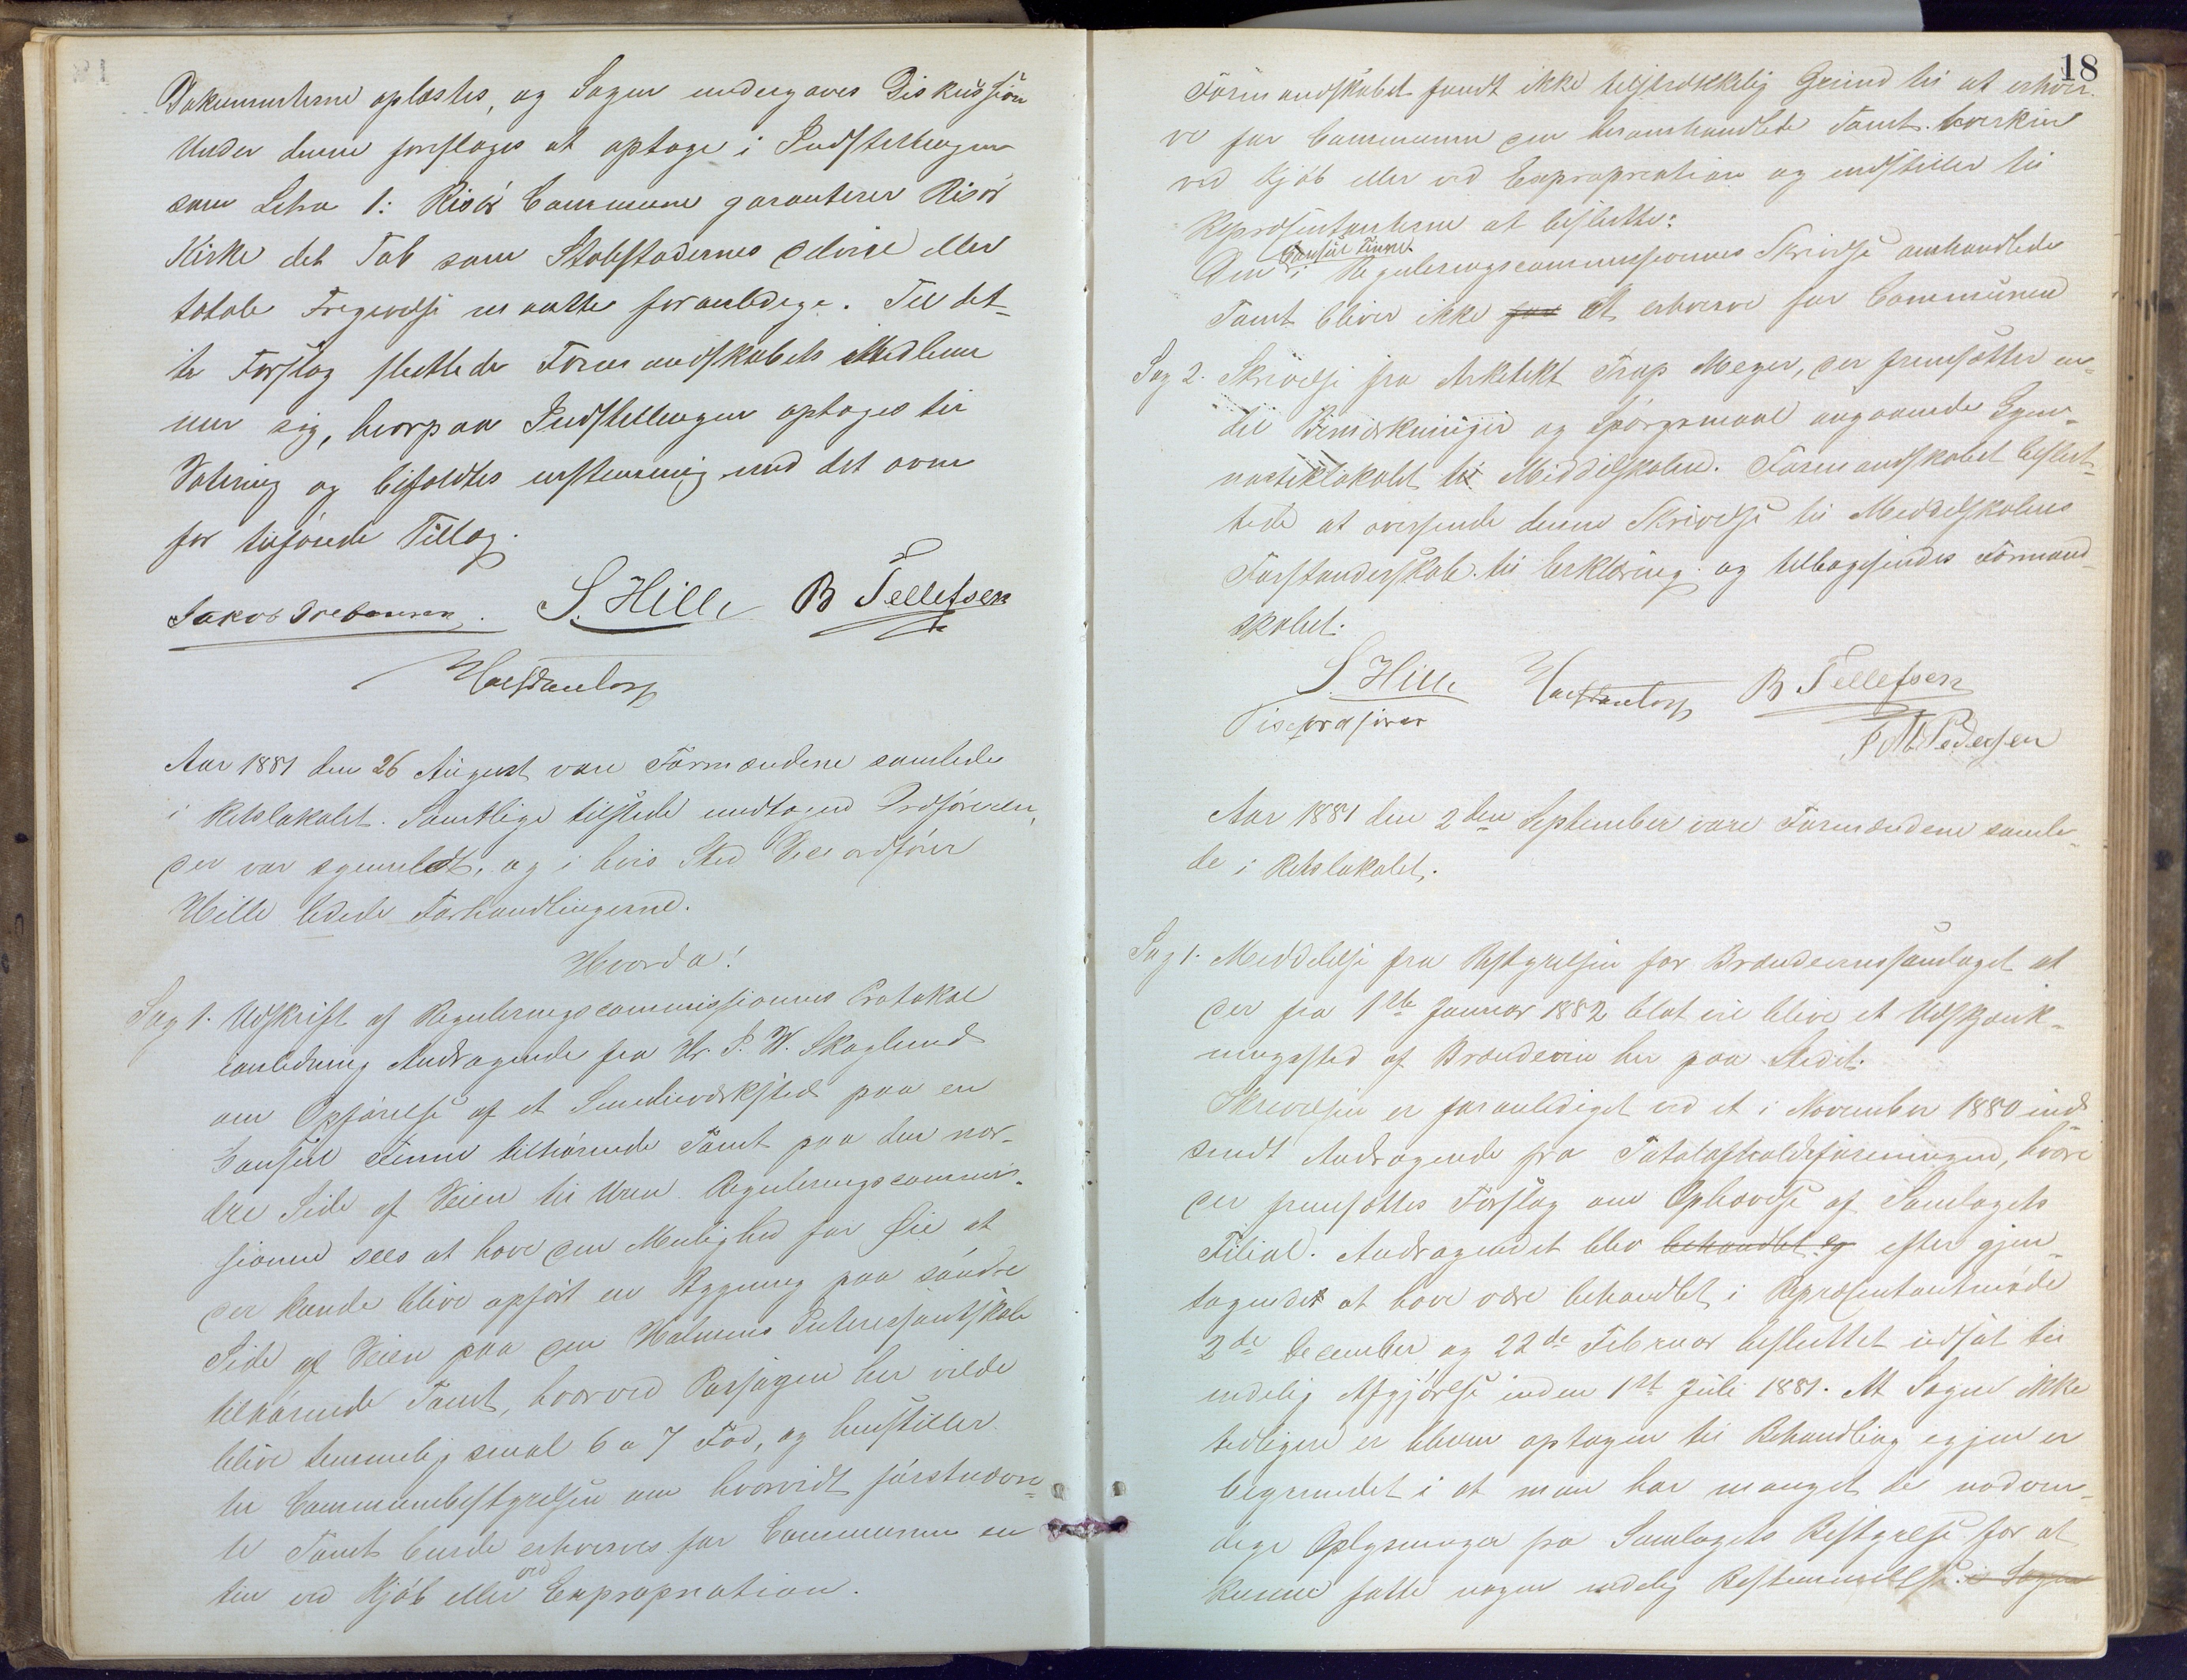 Dokumenterne oplæstes, og Sagen undergaves Diskussion
Under denne foresloges at optage i Indstillingen
som Litra 1: Risør Commune garanterer Risør
Kirke det Tab som Stolestadernes delvise eller
totale Frigivelse maatte foranledige. Til det-
te Forslag sluttede Formandskabets Medlem-
mer sig, hvorpaa Indstillingen optoges til
Votering og bifaldtes enstemmig med det oven
for tilførede Tillæg.
S. Hille B Tellefsen
Aar 1881 den 26 August vare Formændene samlede
i Retslokalet. Samtlige tilstede undtagen Ordføreren,
der var sygemeldt, og i hvis Sted Viceordfører
Hille ledede Forhandlingerne.
Hvorda!
Sag 1. Udskrift af Reguleringscommissionens Protokol
anledning Andragende fra Hr. P. W. Skoglund
om Opførelse af et Smedieværksted paa en
Consul Finne tilhørende Tomt paa den nor-
dre Side af Veien til Uren. Reguleringscommis-
sionen sees at have den Mulighed for Øie at
der kunde blive opført en Bygning paa søndre
Side af Veien paa den Holmens Interessentskab
tilhørende Tomt, hvorved Passagen her vilde
blive temmelig smal 6 a 7 Fod, og henstiller
til Communebestyrelsen om hvorvidt førstnævn-
te Tomt burde erhverves for Communen en
ten ved Kjøb eller ved Expropriation.
18
Formandskabet fandt ikke tilstrækkelig Grund til at erhver-
ve for Communen den heromhandlede Tomt hverken
ved Kjøb eller ved Expropriation og indstiller til
Repræsentanterne at beslutte:
Consul Finnes
Den i Reguleringscommissionens Skrivelse omhandlede
Tomt bliver ikke for at erhverve for Communen
Sag 2. Skrivelse fra Arkitekt Trap Meyer, der fremsætter en-
del Bemærkninger og Spørgsmaal angaaende Gym-
nastiklokalet til Middelskolen. Formandskabet beslut-
tede at oversende denne Skrivelse til Middelskolens
Forstanderskab til Erklæring og tilbagesendes Formand-
skabet.
S. Hille B Tellefsen
Viseordfører
P M Pedersen
Aar 1881 den 2den September vare Formændene samle-
de i Retslokalet.
Sag 1. Meddelelse fra Bestyrelsen for Brændeviinssamlaget at
der fra 1ste Januar 1882 blot vil blive et Udskjænk-
ningssted af Brændeviin her paa Stedet.
Skrivelsen er foranlediget ved et i November 1880 ind
sendt Andragende fra Totalafholdsforeningen, hvori
der fremsattes Forslag om Ophævelse af Samlagets
Filial. Andragendet blev behandlet og efter gjen-
tagende at have være behandlet i Repræsentantmøde
2de December og 22de Februar besluttet udsat til
endelig Afgjørelse inden 1st Juli 1881. At Sagen ikke
tidligere er bleven optagen til Behandling igjen er
begrundet i at man har manglet de nødven-
dige Oplysninger fra Samlagets Bestyrelse for at
kunne fatte nogen endelig Bestemmelse i Sagen